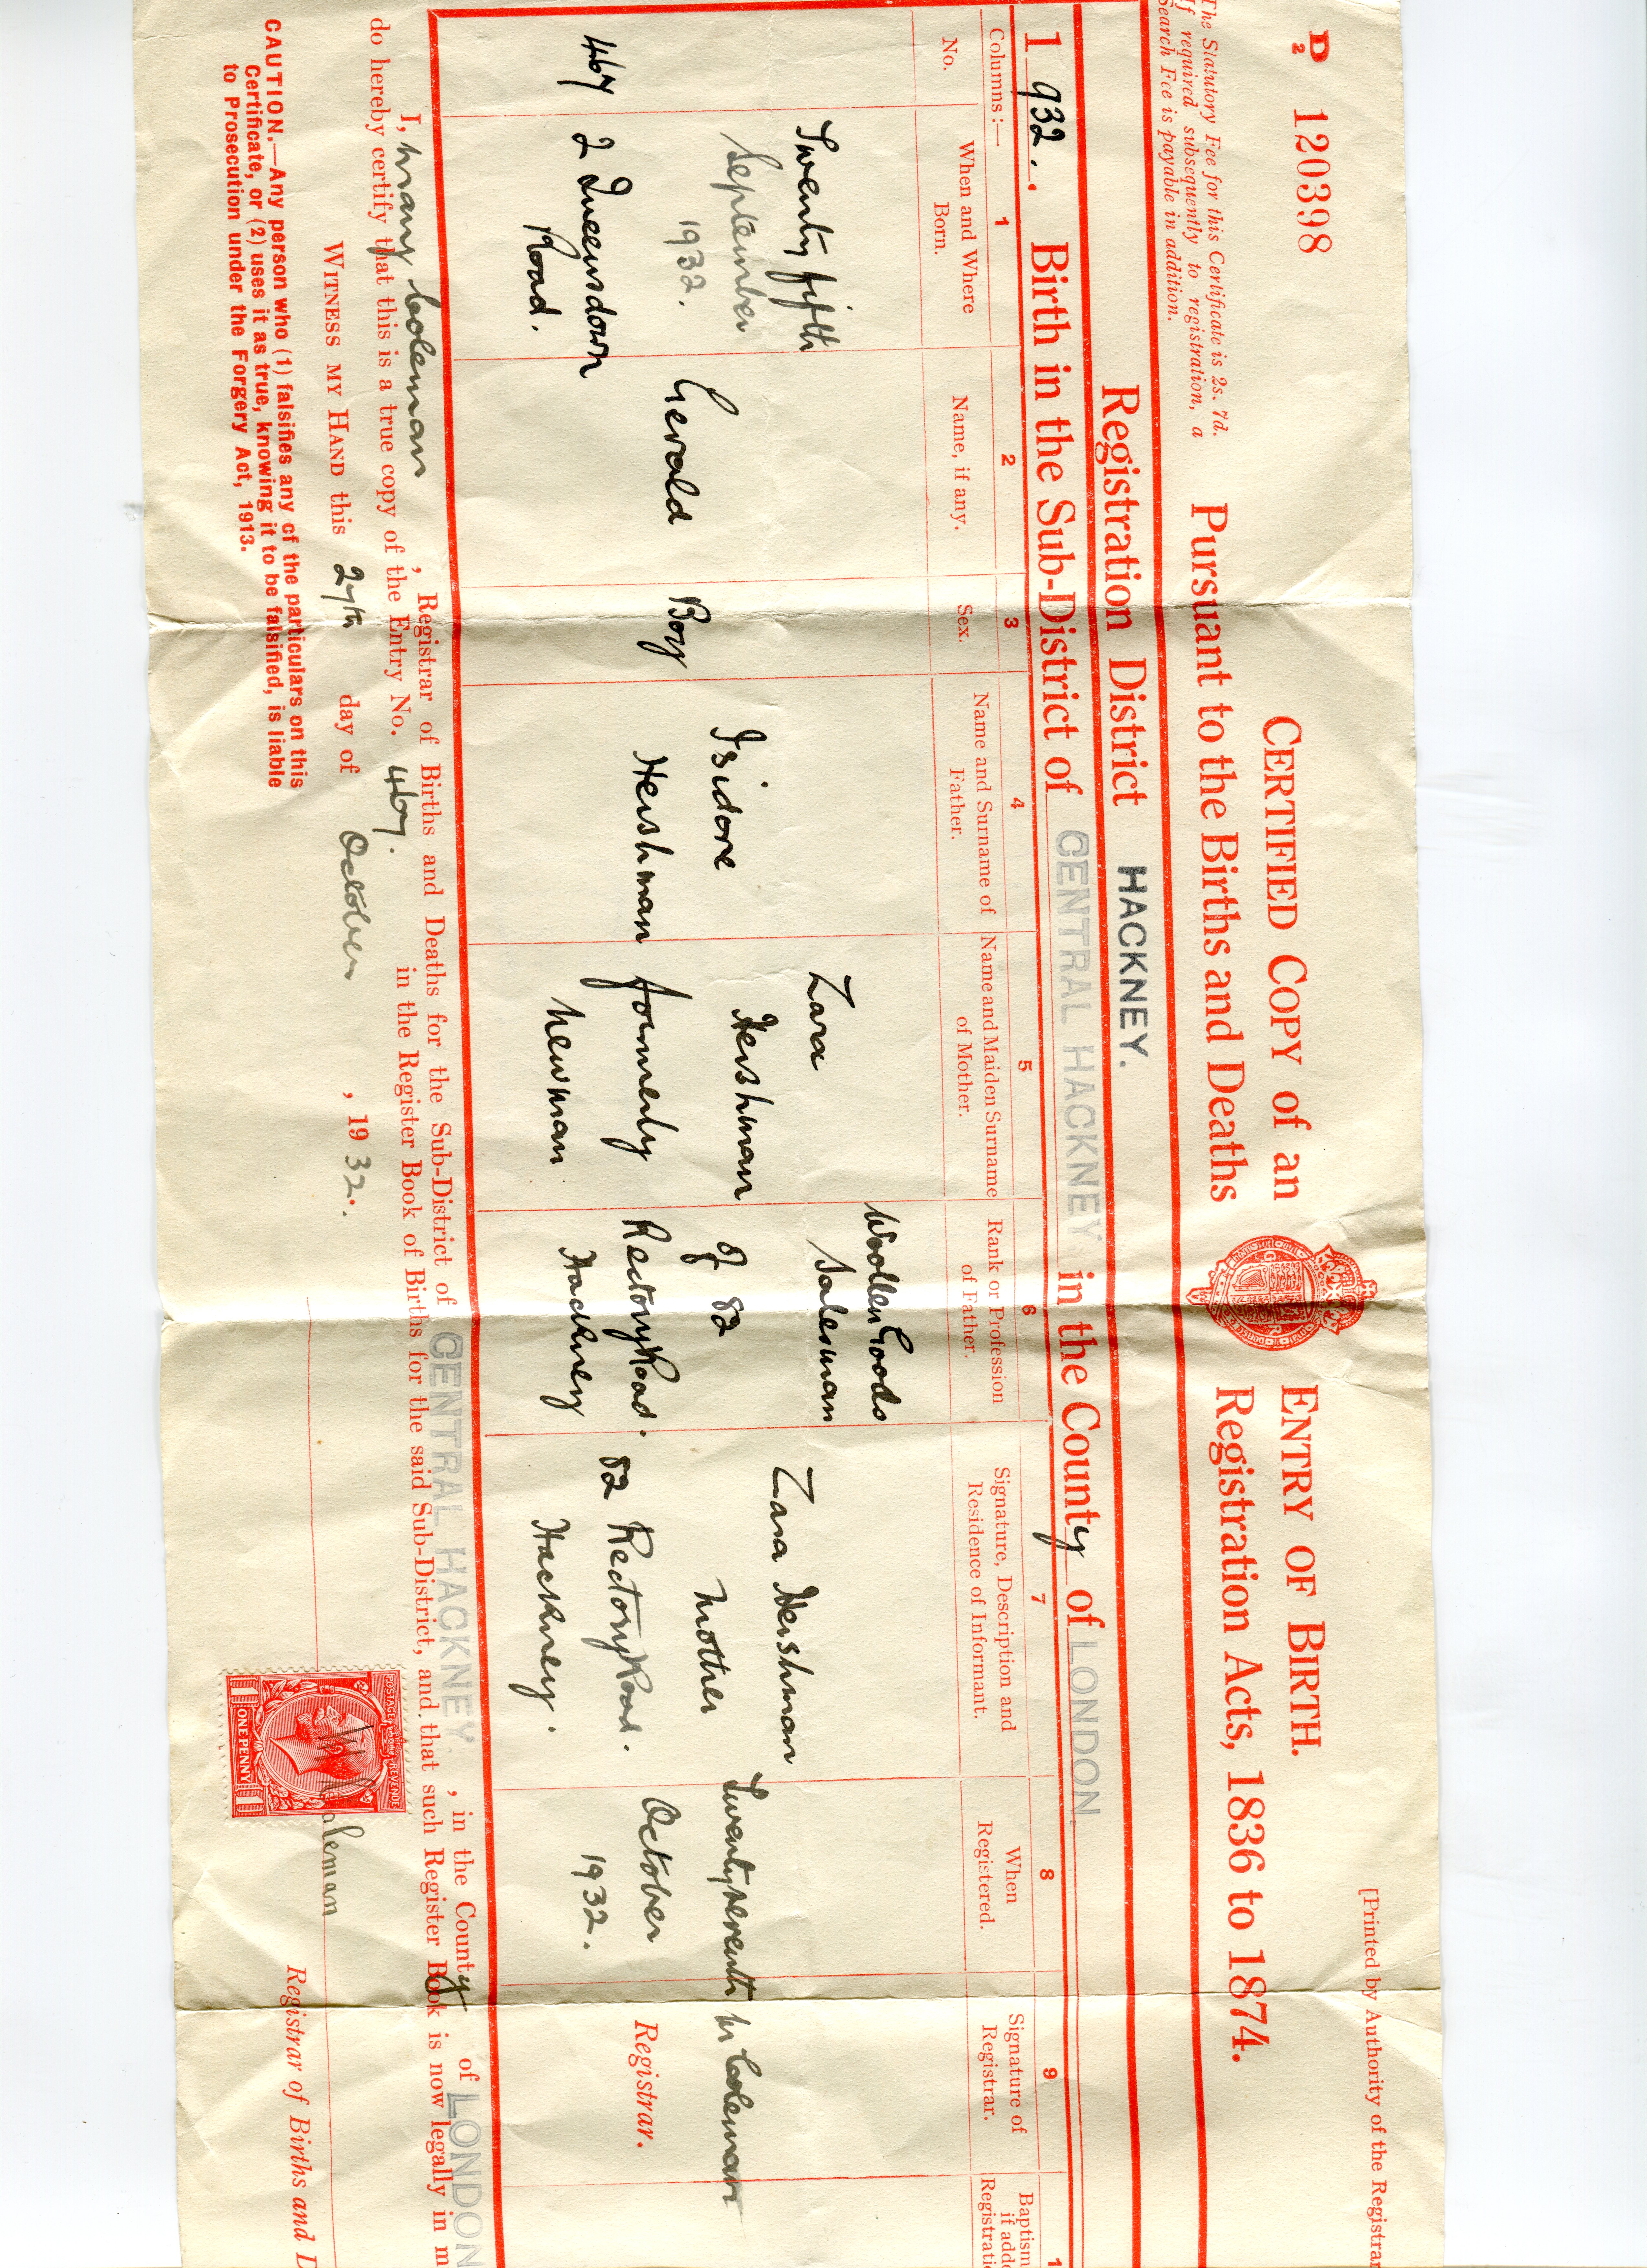 D 120398
2
CERTIFIED COPY of an
ENTRY OF BIRTH.
[Printed by Authority of the Registrar
The Statutory Fee for this Certificate is 2s. 7d.
If required subsequently to registration, a
Search Fee is payable in addition.
Pursuant to the Births and Deaths
Registration Acts, 1836 to 1874.
Registration District HACKNEY.
1932. Birth in the Sub-District of CENTRAL HACKNEY in the County of LONDON
Columns:— 1 2 3 4 5 6 7 8 9 1
No.
When and Where
Born.
Name, if any.
Sex.
Name and Surname of
Father.
Name and Maiden Surname
of Mother.
Rank or Profession
of Father.
Signature, Description and
Residence of Informant.
When
Registered.
Signature of
Registrar.
Baptism
if adde
Registrati
467
Twenty fifth
September
1932.
2 Queensdown
Road.
Gerald
Boy
Isidore
Hershman
Zara
Hershman
formerly
Newman
Woollen Goods
Salesman
of 82
Rectory Road.
Hackney
Zara Hershman
Mother
82 Rectory Road.
Hackney.
Twenty seventh
October
1932.
M Coleman
Registrar.
I, Mary Coleman, Registrar of Births and Deaths for the Sub-District of CENTRAL HACKNEY, in the County of LONDON
do hereby certify that this is a true copy of the Entry No. 467. in the Register Book of Births for the said Sub-District, and that such Register Book is now legally in m
WITNESS MY HAND this 27th day of October, 1932.
CAUTION.—Any person who (1) falsifies any of the particulars on this
Certificate, or (2) uses it as true, knowing it to be falsified, is liable
to Prosecution under the Forgery Act, 1913.
POSTAGE REVENUE
ONE PENNY
M Coleman
Registrar of Births and D